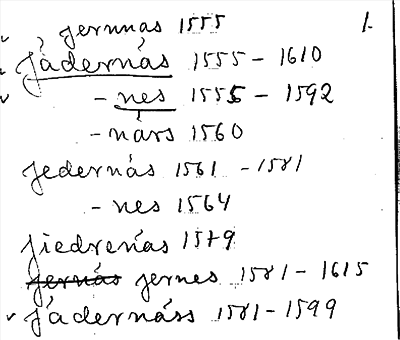 ✓ jernnas 1555 1.
jädernäs 1555 – 1610
✓ – nes 1555 – 1592
– närs 1560
jedernäs 1561 – 1581
– nes 1564
jiedrenäs 1579
jernäs jernes 1581 – 1615
✓ jädernäss 1581 – 1599